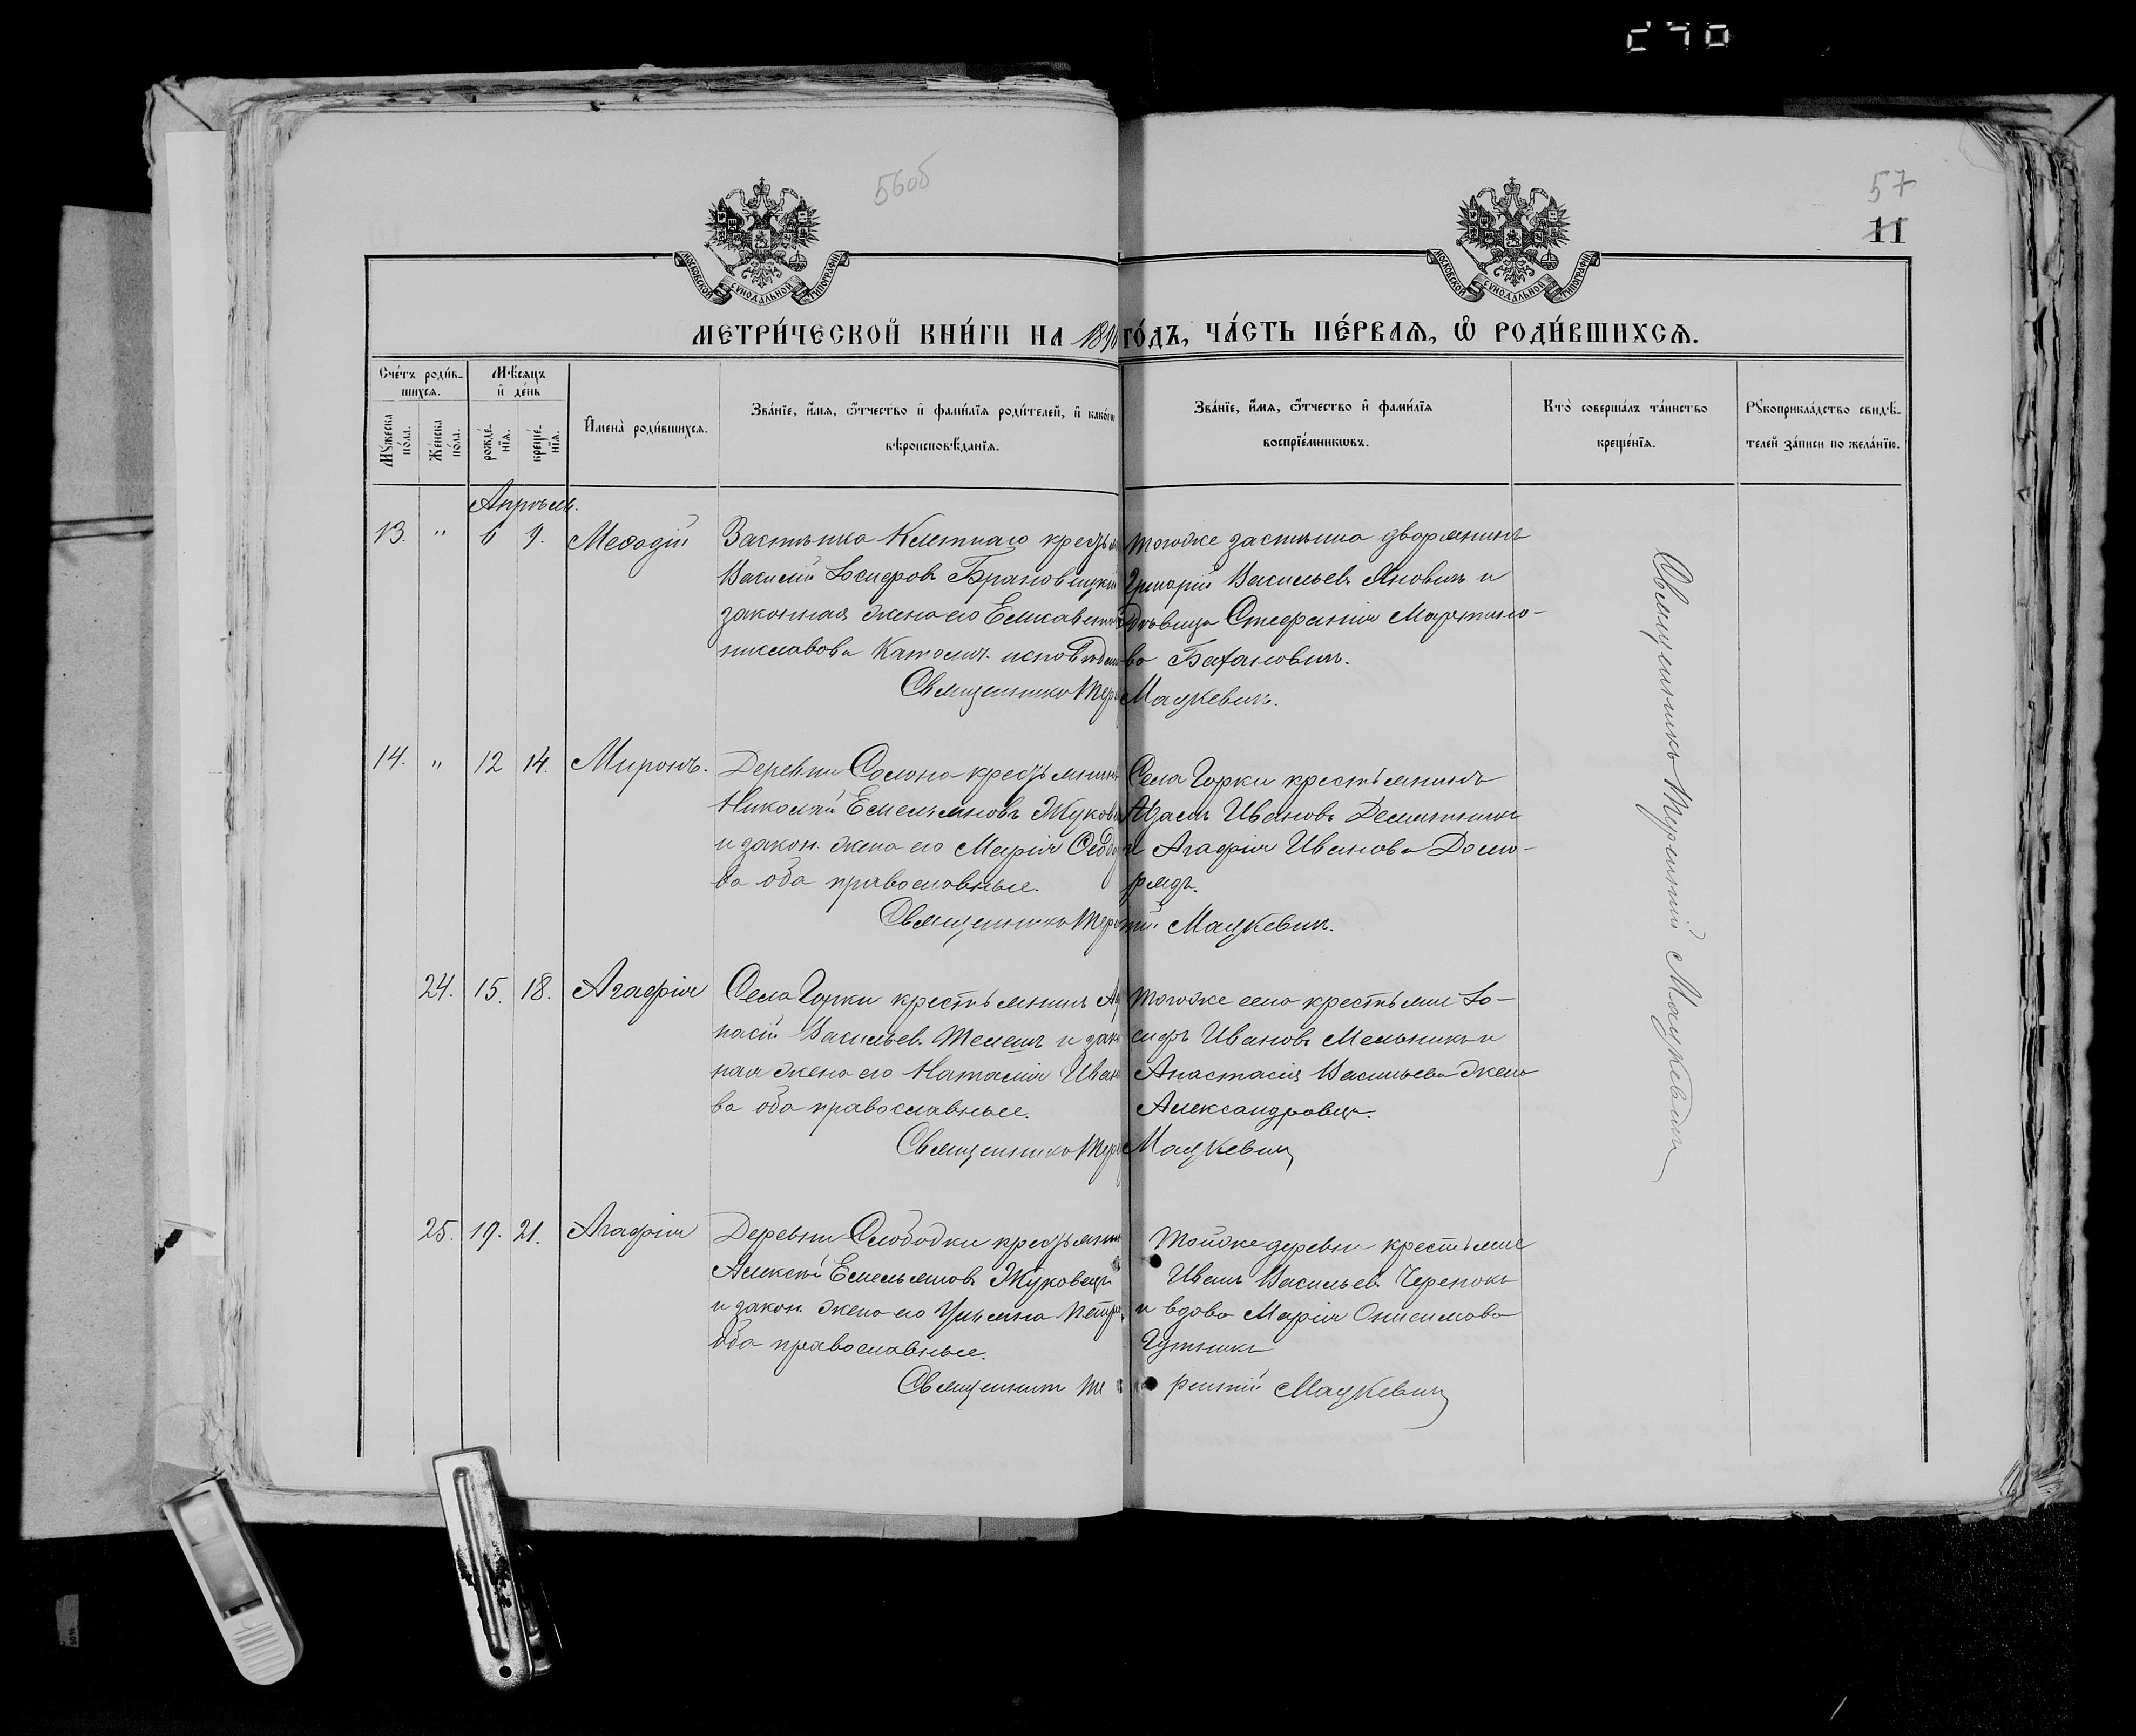 570
56об
57
11
МОСКОВСКОЙ СѴНОДАЛЬНОЙ ТИПОГРАФІИ
МОСКОВСКОЙ СѴНОДАЛЬНОЙ ТИПОГРАФІИ
МЕТРИ́ЧЕСКОЙ КНИ́ГИ НА 1890 ГО́ДЪ, ЧА́СТЬ ПЕ́РВАѦ, Ѿ РОДИ́ВШИХСѦ.
Счéтъ роди́в-
шихсѧ.
Мꙋ́жеска
по́ла.
Же́нска
по́ла.
Мѣ́сѧцъ
и҆ де́нь
рожде́-
нїѧ.
креще́-
нїѧ.
И҆мена̀ роди́вшихсѧ.
Зва́нїе, и҆́мѧ, ѻ҆́тчество и҆ фами́лїѧ роди́телей, и҆ како́гѡ
вѣроисповѣ́данїѧ.
Зва́нїе, и҆́мѧ, ѻ҆́тчество и҆ фами́лїѧ
воспрїе́мникѡвъ.
Кто̀ соверша́лъ та́инство
креще́нїѧ.
Рꙋкоприкла́дство свидѣ́-
телей за́писи по жела́нїю.
Апрѣль.
13. " 6 9. Меѳодій
Застѣнка Клетнаго крестьян
Василій Іосифовъ Брановицкій
законная жена его Елисавета
ниславова Католич. исповѣдан
Священникъ Тере
тогоже застѣнка дворянинъ
Григорій Васильевъ Яновичъ и
дѣвица Стефанія Мартино-
ва Баханович.
Мацкевичъ.
14. " 12 14. Миронъ.
Деревни Солона крестьянинъ
Николай Емельяновъ Жуков
и закон. жена его Марія Ѳеодо
ва оба православные.
Священникъ Тере
Села Горки крестьянинъ
Адамъ Ивановъ
и Агафія Иванова Домо-
радъ.
тій Мацкевичъ.
24. 15. 18. Агафія
Села Горки крестьянинъ Аѳ
насій Васильевъ Телешъ и зак
ная жена его Наталія Ивано
ва оба православные.
Священникъ Тере
Тогоже села крестьяне Іо-
сифъ Ивановъ Мельникъ и
Анастасія Васильева жена
Александровца.
Мацкевичъ
25. 19. 21. Агафія
Деревни Слободки крестьянин
Алексѣй Емельяновъ Жуковецъ
и закон. жена его Ульяна Петро
оба православные.
Священникъ Те
Тойже деревни крестьяне
Иванъ Васильевъ Черепокъ
и вдова Марія Онисимова
Гутникъ
рентій Мацкевичъ
Священникъ Терентій Мацкевичъ